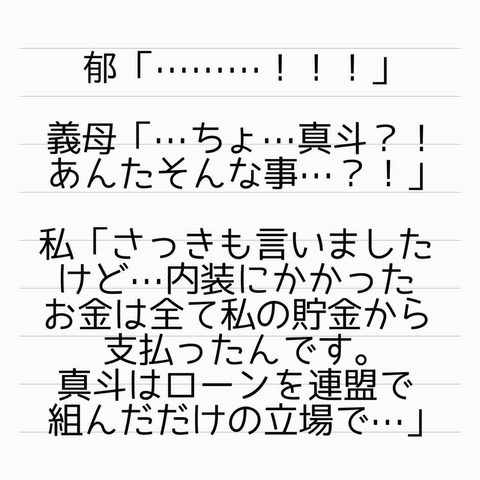 郁「………！！！」
義母「…ちょ…真斗？！
あんたそんな事…？！」
私「さっきも言いました
けど…内装にかかった
お金は全て私の貯金から
支払ったんです。
真斗はローンを連盟で
組んだだけの立場で…」